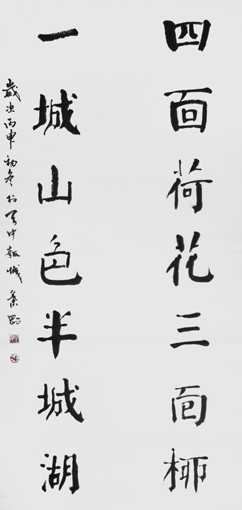 四面荷花三面柳
一城山色半城湖
歲次丙申初冬